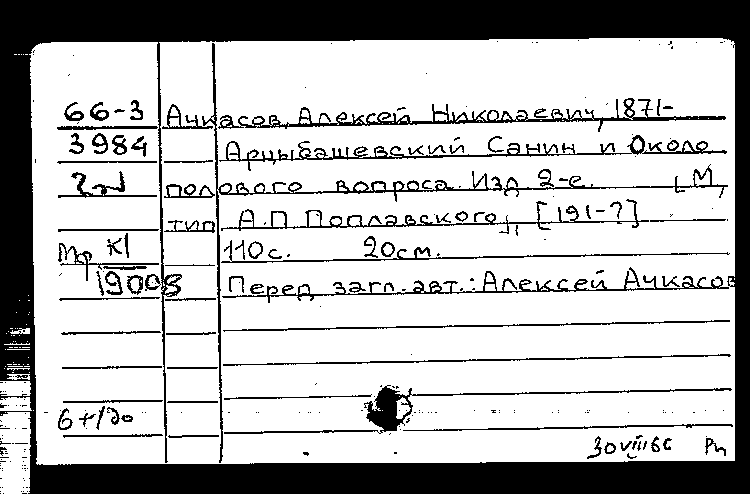 66-3 Ачкасов, Алексей Николаевич, 1871-
3984 Арцыбашевский Санин и Около
полового вопроса. Изд 2-е. [М,
тип А.П Поплавского], [191-?]
Мф К1 110с. 20см.
19008 Перед загл. авт.: Алексей Ачкасов
30 VIII 66